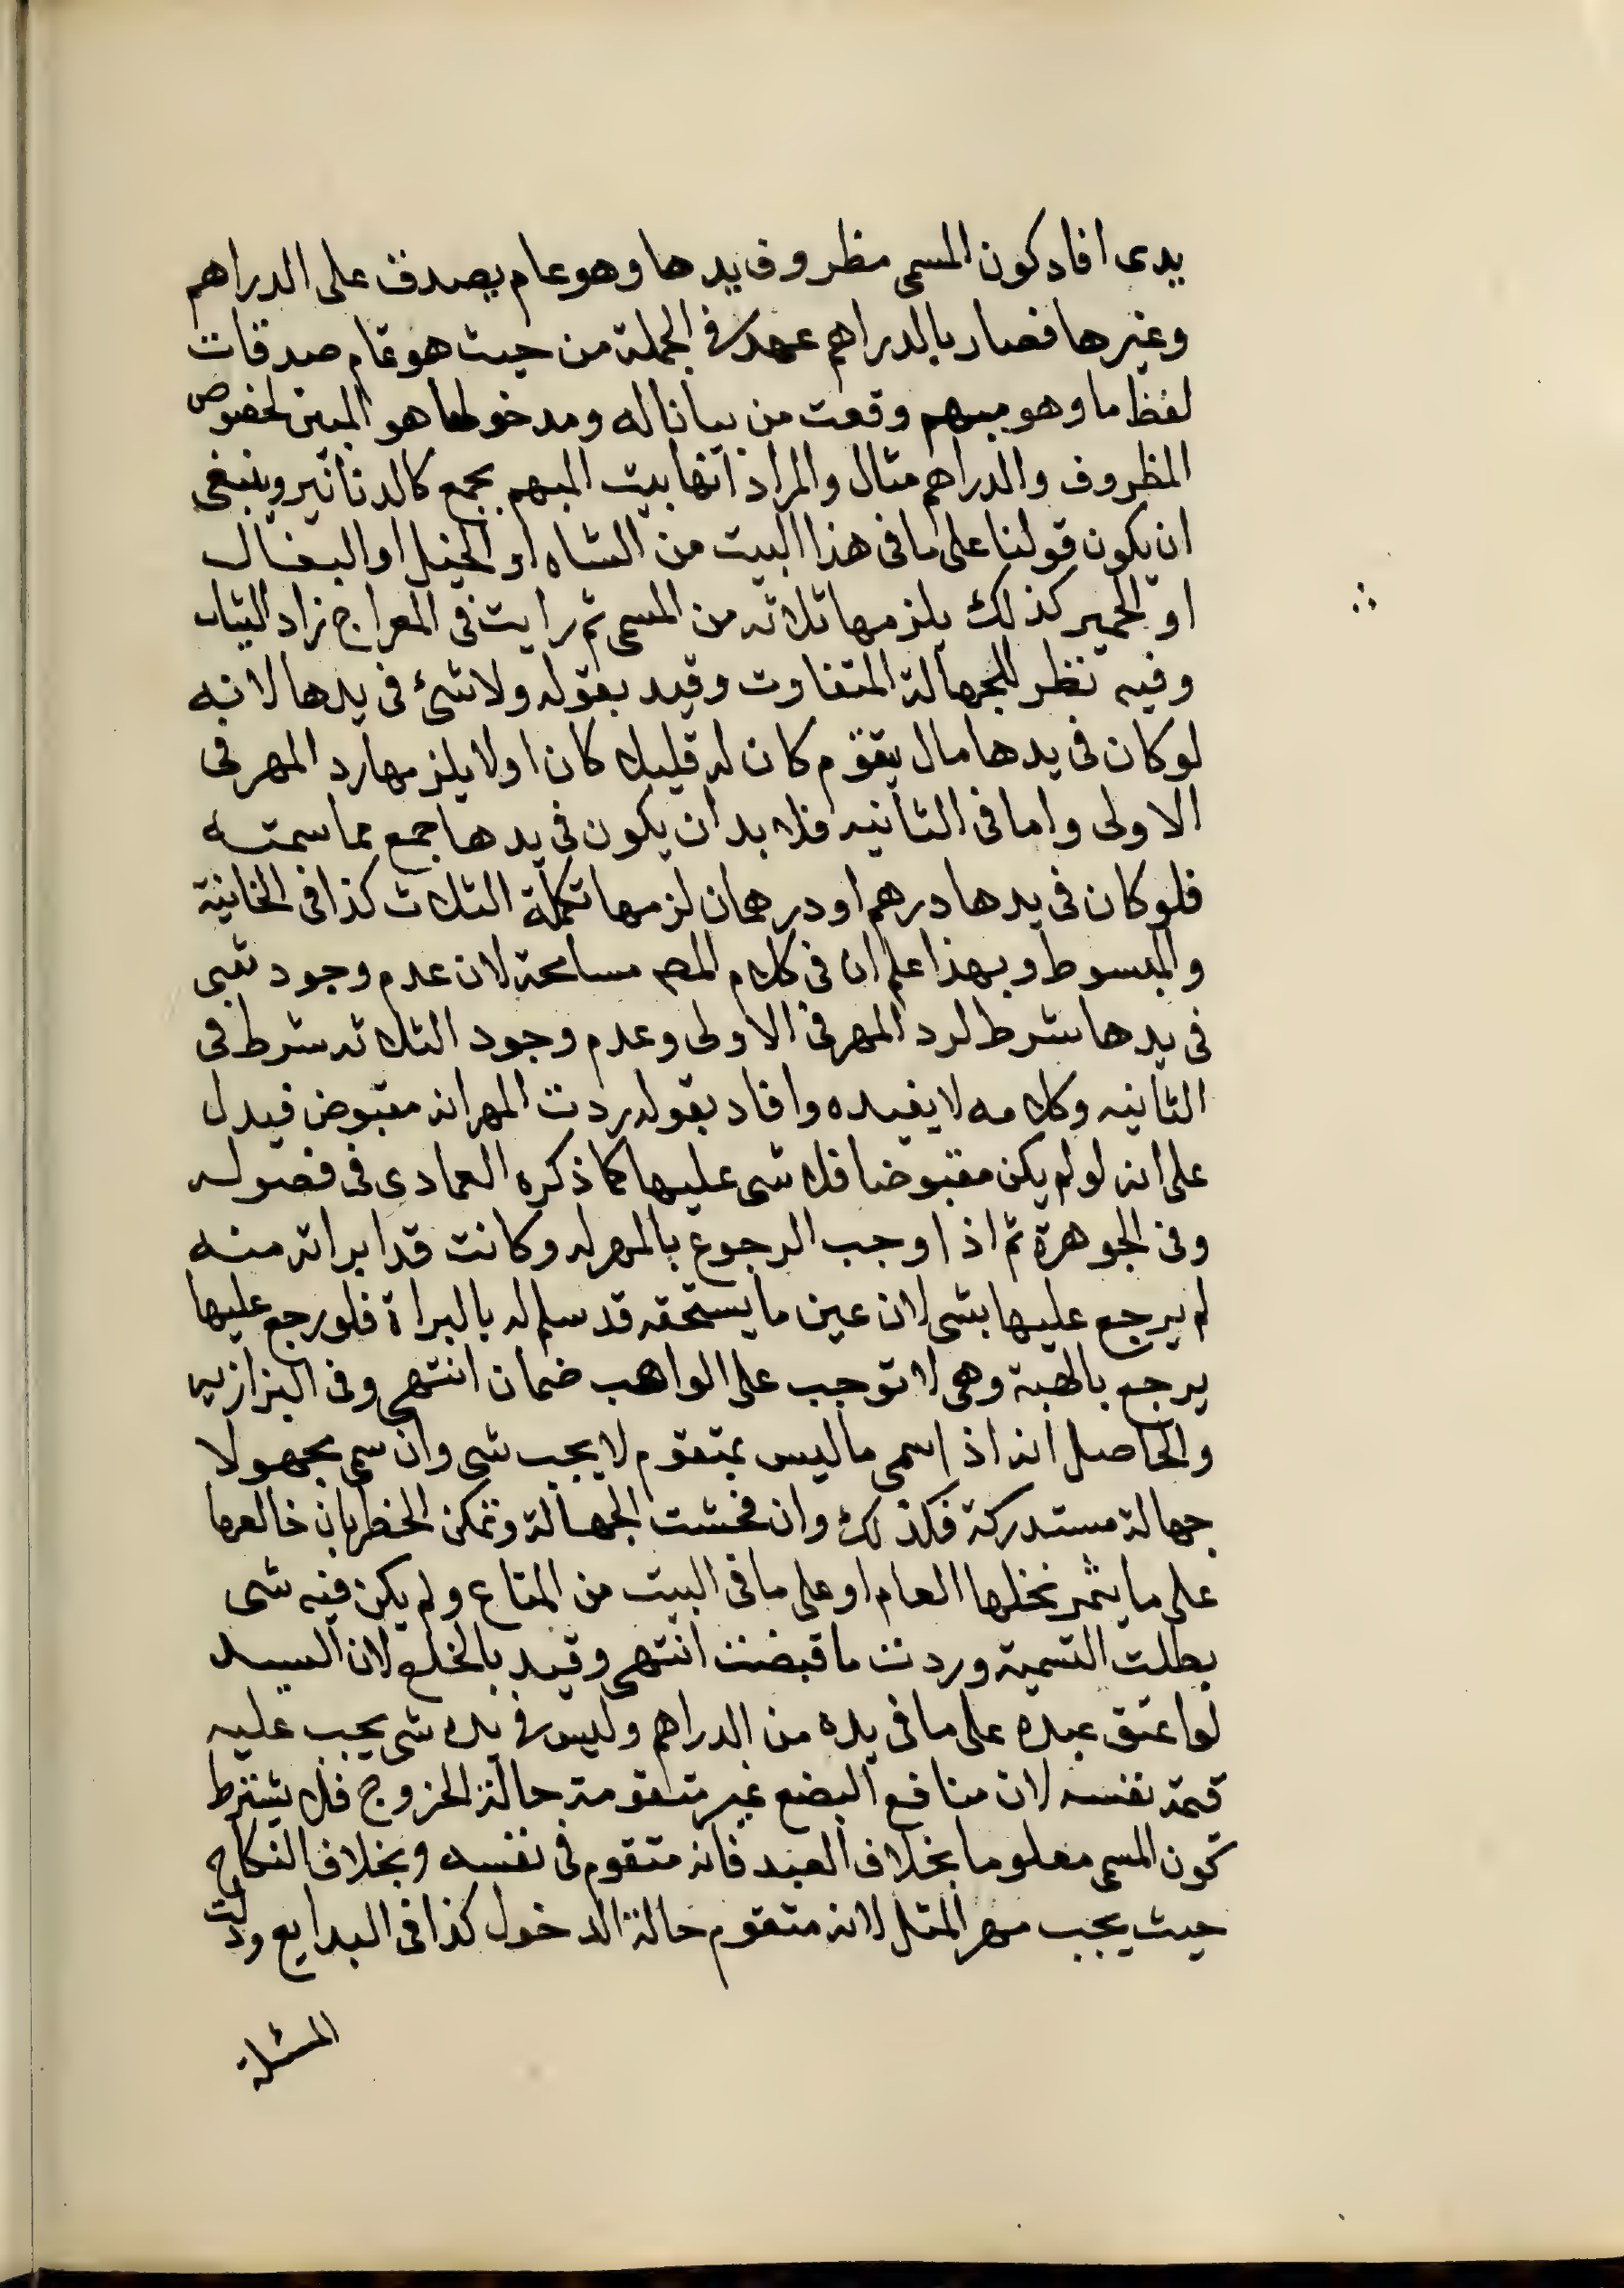 يدى افاد كون المسمى مظروف يدها وهو عام يصدق على الدراهم
وغيرها فصار بالدراهم عهدى فى الجملة من حيث هو عام صدقات
لفظ ما وهو مبهم وقعت من بيانا له ومدخولها هو المبين لخصوص
المظروف والدراهم مثال والمراد انها بيت المبهم بجمع كالدنانير وينبغى
ان يكون قولنا على ما فى هذا البيت من الشاه او الخيل او البغال
او الحمير كذلك يلزمها ثلاثه من المسمى ثم رايت فى المعراج زاد الثياب
وفيه نظر للجهالة المتفاوت وقيد بقوله ولا شئ فى يدها لانه
لو كان فى يدها مال يتقوم كان له قليلا كان اولا يلزمها رد المهر فى
الاولى واما فى الثانيه فلا بد ان يكون فى يدها جمع مما سمته
فلو كان فى يدها درهم او درهمان لزمها تكملة الثلاث كذا فى الخانية
والمبسوط وبهذا علم ان فى كلام المصـ مسامحة لان عدم وجود شى
فى يدها شرط لرد المهر فى الاولى وعدم وجود الثلاثه شرط فى
الثانيه وكلامه لا يفيده وافاد بقوله ردت المهر انه مقبوض فيدل
على انه لو لم يكن مقبوضا فلا شى عليها كما ذكره العمادى فى فصوله
وفى الجوهرة ثم اذا وجب الرجوع بالمهر له وكانت قد ابراته منه
لم يرجع عليها بشى لان عين ما يستحقه قد سلم له بالبراة فلو رجع عليها
يرجع بالهبة وهى لا توجب على الواهب ضمان انتهى وفى البزازيه
والحاصل انه اذا سمى ما ليس بمتقوم لا يجب شى وان سمى مجهولا
جهالة مستدركة فكذلك وان فحشت الجهالة وتمكن الخطر بان خالعها
على ما يثمر نخلها العام او على ما فى البيت من المتاع ولم يكن فيه شى
بطلت التسمية وردت ما قبضت انتهى وقيد بالخلع لان السيد
لو اعتق عبده على ما فى يده من الدراهم وليس فى يده شى يجب عليه
قيمة نفسه لان منافع البضع غير متقومة حالة الخروج فلا يشترط
كون المسمى معلوما بخلاف العبد فانه متقوم فى نفسه وبخلاف النكاح
حيث يجب مهر المثل لانه متقوم حالة الدخول كذا فى البدايع ودلت
المسئلة